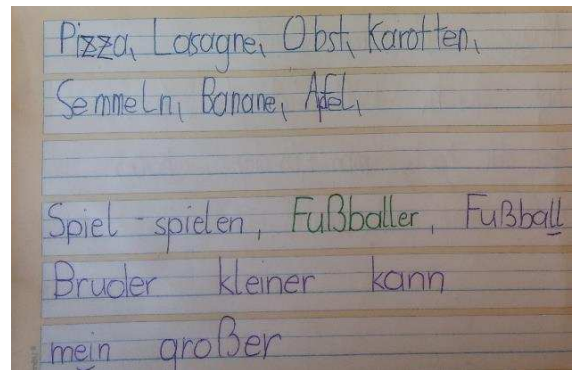 Pizza, Lasagne, Obst, Karotten,
Semmeln, Banane, Apfel,
Spiel - spielen, Fußballer, Fußball
Bruder kleiner kann
mein großer